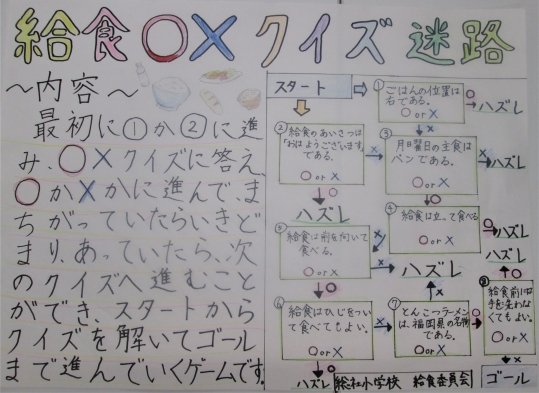 給食○×クイズ迷路
～内容～
最初に①か②に進
み、○×クイズに答え、
○か×かに進んで、ま
ちがっていたらいきど
まり、あっていたら、次
のクイズへ進むこと
ができ、スタートから
クイズを解いてゴール
まで進んでいくゲームです。
スタート
①
ごはんの位置は
右である。
○or×
○
ハズレ
×
②給食のあいさつは
「おはようございます」
である。
○or×
×
○
ハズレ
③
月曜日の主食は
パンである。
○or×
×
ハズレ
○
④
給食は立って食べる
○or×
○
ハズレ
×
⑤
給食は前を向いて
食べる。
○or×
×
ハズレ
○
⑥
給食はひじをつい
て食べてもよい。
○or×
×
○
ハズレ
⑦
とんこつラーメン
は、福岡県の名物
である。
○or×
×
○
ハズレ
○
⑧
給食前は
手を洗わな
くてもよい。
○or×
×
ゴール
総社小学校 給食委員会